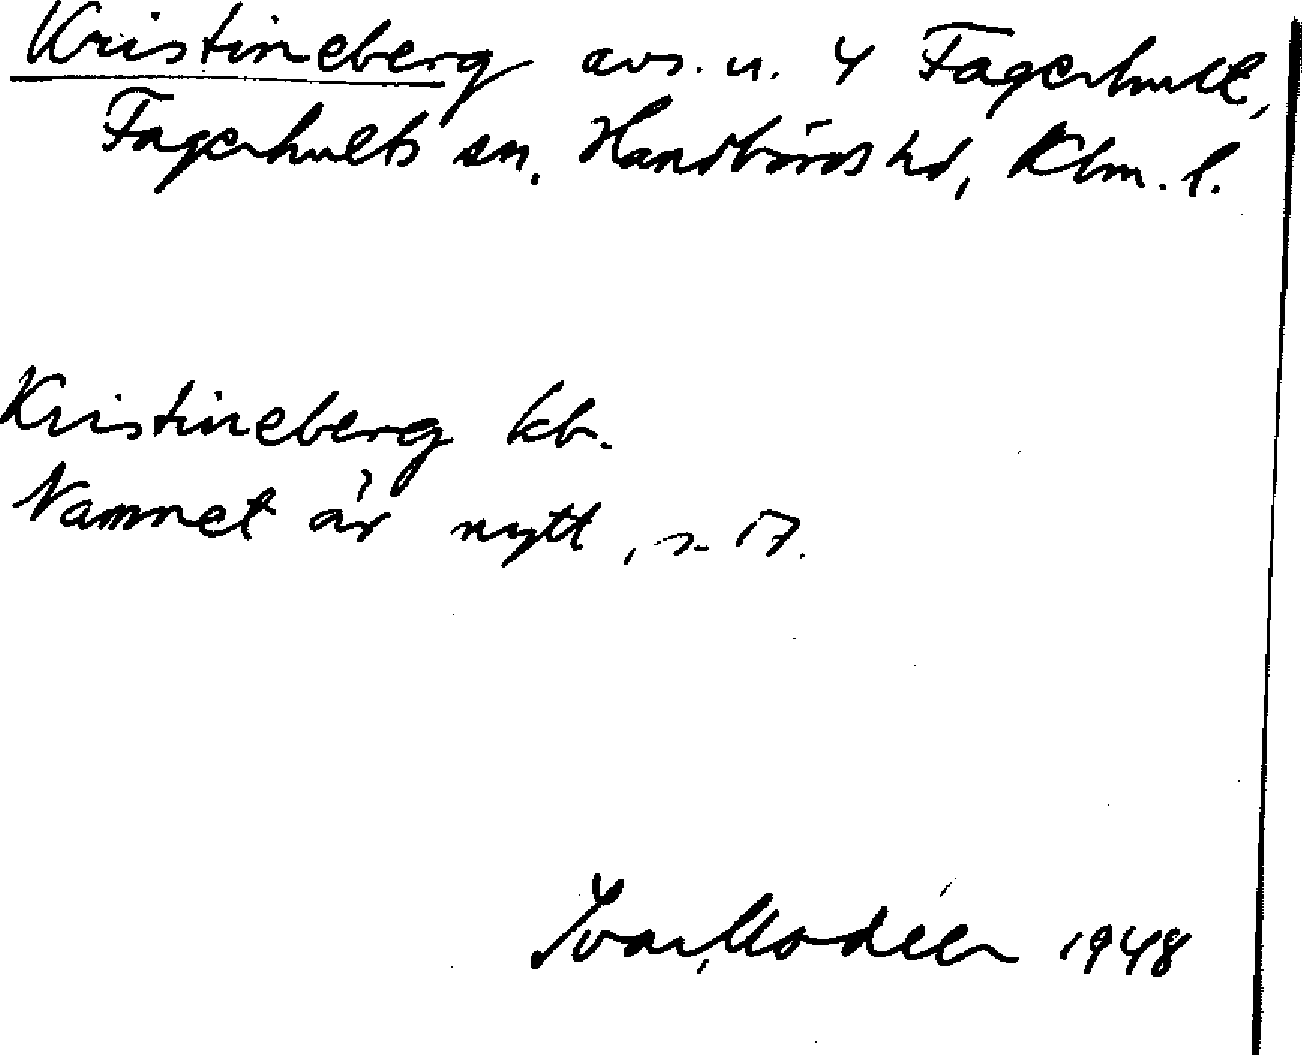 Kristineberg avs. u. 4 Fagerhult,
Fagerhults sn. Handbörds hd, Klm. l.
Kristineberg kb.
Namnet är nytt, s. 17.
Ivar Modéer 1948